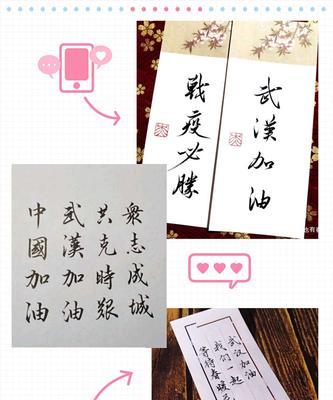 武漢加油
戰疫必勝
衆志成城
共克時艱
武漢加油
中國加油
武汉加油
我们一起
等待春暖